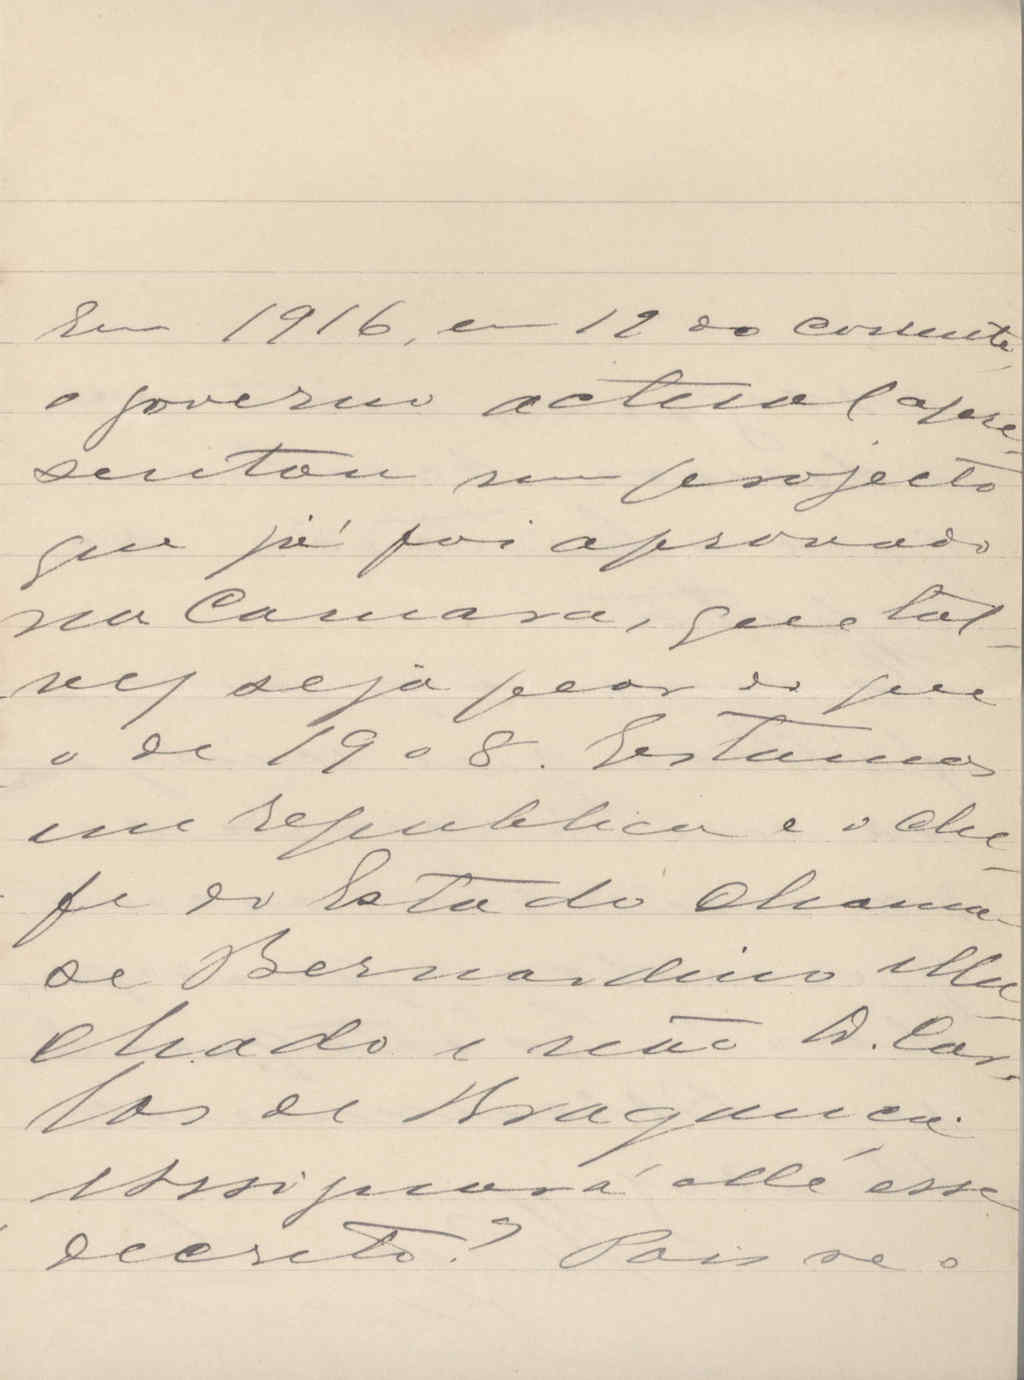 Em 1916, em 12 do corrente,
o governo actual apre-
sentou um projecto
que já foi aprovado
na Camara, que tal-
vez seja peor do que
o de 1908. Estamos
em republica e o che-
fe do Estado chama-
se Bernardino Ma-
chado e não D. Car-
los de Bragança.
Assignará elle esse
decreto? Pois se o